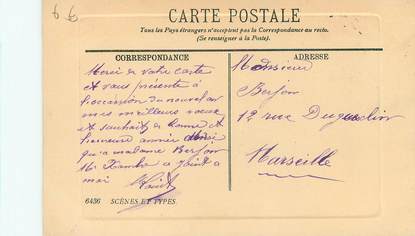 6 6
CARTE POSTALE
Tous les Pays étrangers n'acceptent pas la Correspondance au recto.
(Se renseigner à la Poste).
CORRESPONDANCE
ADRESSE
Merci de votre carte
et vous présente à
l'occasion du nouvel an
mes meilleurs vœux
et souhaits de bonne et
heureuse année
qu'a madame Berfon
se joint a
moi
Monsieur
Berfon
12 rue Duguesclin
Marseille
6436 SCÈNES ET TYPES.